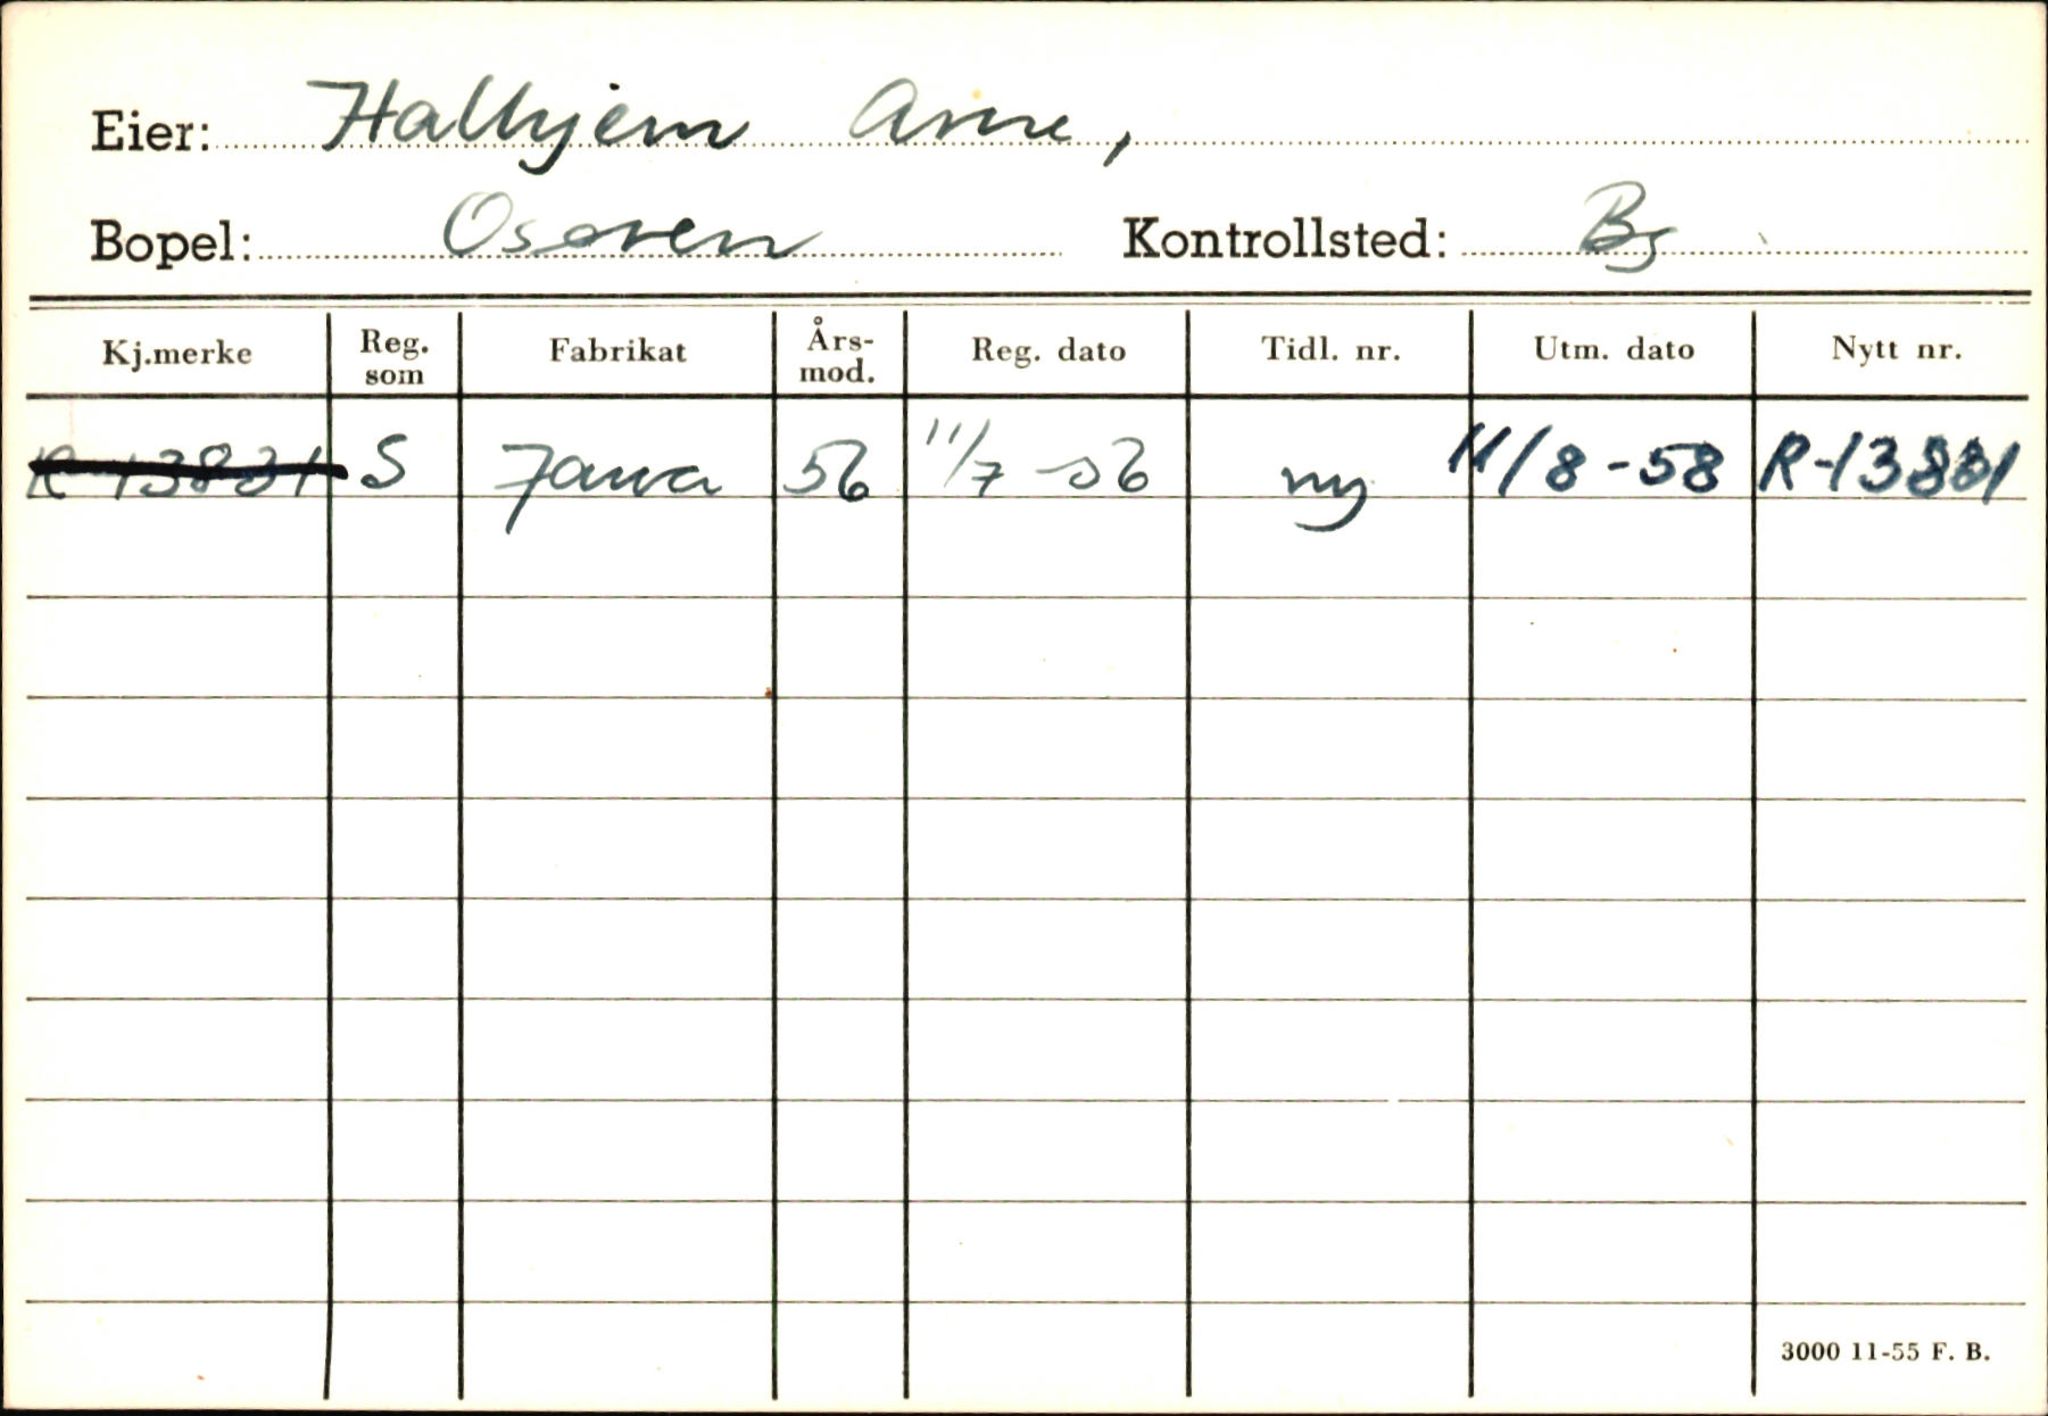 Eier: Halhjem Arne,
Bopel: Osøren Kontrollsted: Bg
Kj.merke Reg. som Fabrikat Års-mod. Reg. dato Tidl. nr. Utm. dato Nytt nr.
R-13831 S Jawa 56 11/7-56 ny 11/8-58 R-13831
3000 11-55 F. B.